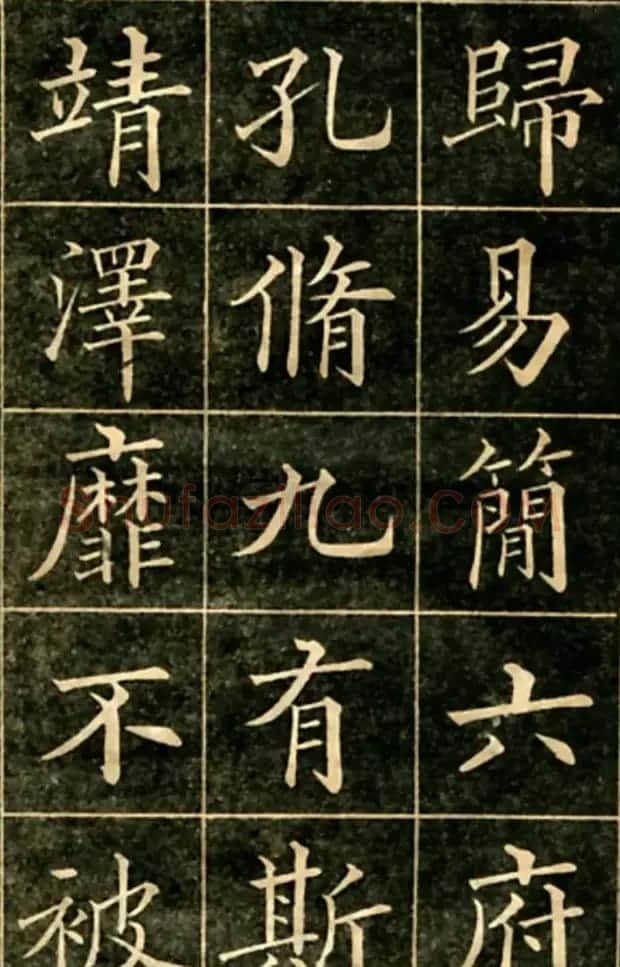 歸易簡六府
孔脩九有斯
靖澤靡不被
Shufaziliao.com